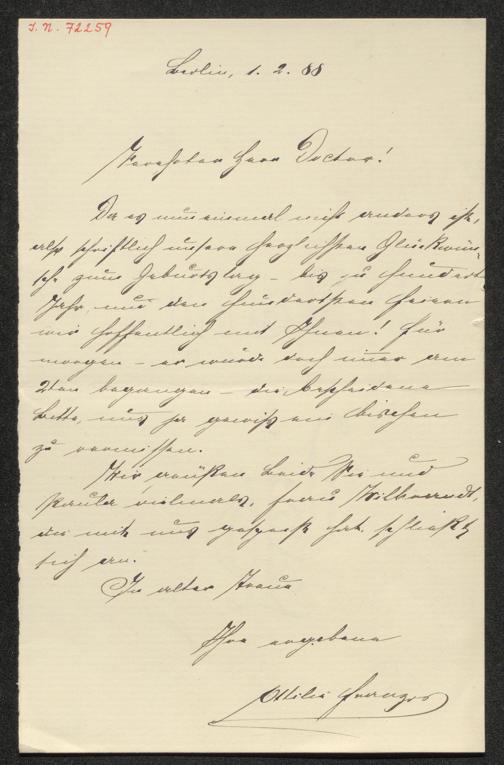 J. N. 72259
Berlin, 1. 2. 88
Verehrter Herr Doctor!
Da es nun einmal nicht anders ist,
also schriftlich unsere herzlichsten Glückwün-
sche zum Geburtstag – bis zu hundert
Jahr, und den hundertsten feiern
wir hoffentlich mit Ihnen! Für
morgen – er wurde doch immer am
2ten begangen – die bescheidene
Bitte, uns ja gewiß ein bischen
zu vermissen.
Wir grüßen beide Sie und
vielmals, Frau Wilbrandt,
die mit uns gespeist hat, schließt
sich an.
In alter Treue
Ihre ergebene
Ottilie Franzos